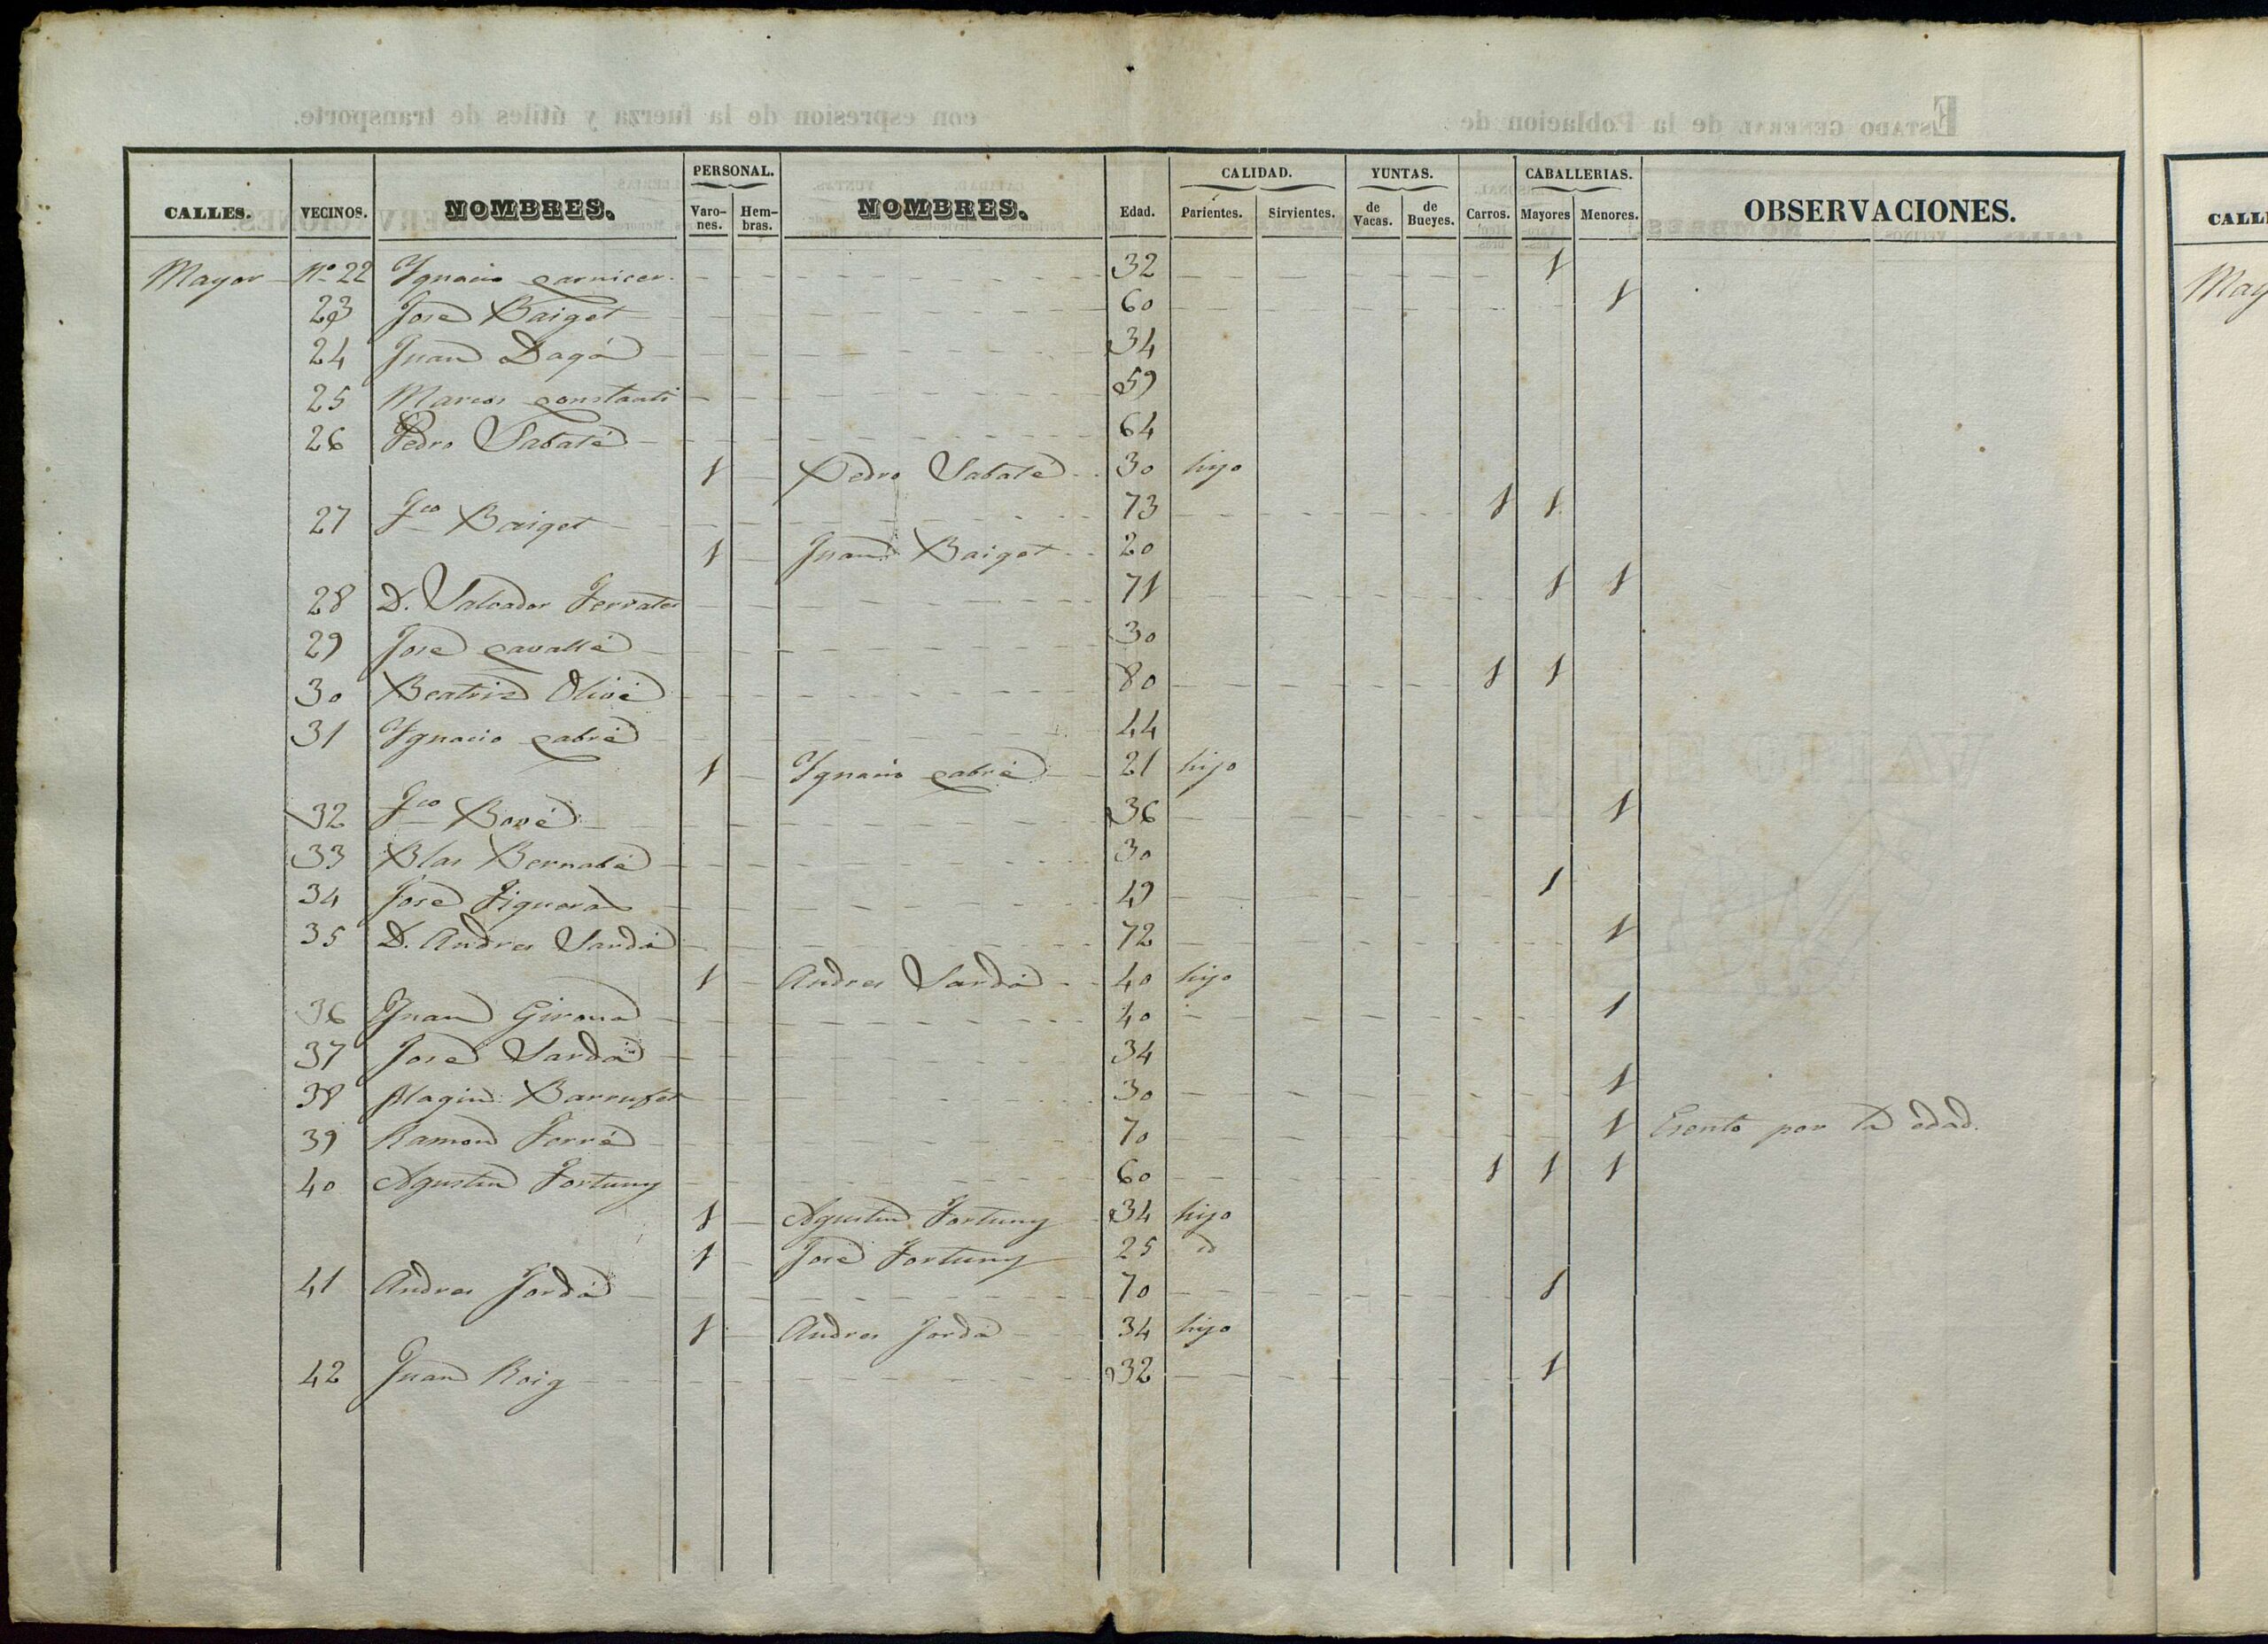 CALLES. VECINOS. NOMBRES. PERSONAL. Varones. Hembras. NOMBRES. Edad. CALIDAD. Parientes. Sirvientes. YUNTAS. de Vacas. de Bueyes. Carros. CABALLERIAS. Mayores Menores. OBSERVACIONES.
Mayor Nº 22 Ygnacio Carnicer 32 1
23 José Baiget 60 1
24 Juan Dagá 34
25 Marcos Constanti 59
26 Pedro Sabaté 64
1 Pedro Sabaté 30 hijo
27 Fco Baiget 73 1 1
1 Juan Baiget 20
28 D. Salvador Ferrater 71 1 1
29 José Cavallé 30
30 Beatriz Olivé 80 1 1
31 Ygnacio Cabré 44
1 Ygnacio Cabré 21 hijo
32 Fco Bové 36 1
33 Blas Bernabé 30
34 José Figueras 49 1
35 D. Andres Sardá 72 1
1 Andres Sardá 40 hijo
36 Juan Girona 40 1
37 José Sardá 34
38 Magin Barrufet 30 1
39 Ramon Ferré 70 1 Esento por la edad.
40 Agustin Fortuny 60 1 1 1
1 Agustin Fortuny 34 hijo
1 José Fortuny 25 id
41 Andres Jordá 70 1
1 Andres Jordá 34 hijo
42 Juan Roig 32 1